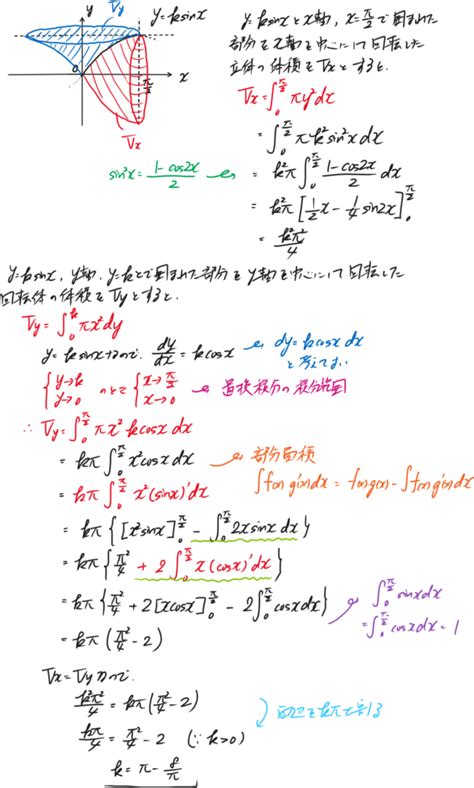 Vy
y=ksinx
y
x
0
π/2
Vx
y=ksinxとx軸, x=π/2で囲まれた
部分をx軸を中心にして回転した
立体の体積をVxとすると.
Vx=∫₀^{π/2} πy²dx
=∫₀^{π/2} πk²sin²xdx
sin²x=(1-cos2x)/2
=k²π∫₀^{π/2} (1-cos2x)/2 dx
=k²π[1/2x-1/4sin2x]₀^{π/2}
=k²π²/4
y=ksinx, y軸, y=kとで囲まれた部分をy軸を中心にして回転した
回転体の体積をVyとすると.
Vy=∫₀^k πx²dy
y=ksinxなので. dy/dx=kcosx
dy=kcosxdx
と考えてよい
{y→k y→0 のとき {x→π/2 x→0
置換積分の積分範囲
∴ Vy=∫₀^{π/2} πx²kcosxdx
=kπ∫₀^{π/2} x²cosxdx
部分積分
=kπ∫₀^{π/2} x²(sinx)'dx
∫f(x)g'(x)dx=f(x)g(x)-∫f'(x)g(x)dx
=kπ{[x²sinx]₀^{π/2}-∫₀^{π/2} 2xsinxdx}
=kπ{π²/4+2∫₀^{π/2} x(cosx)'dx}
=kπ{π²/4+2[xcosx]₀^{π/2}-2∫₀^{π/2} cosxdx}
∫₀^{π/2} sinxdx
=∫₀^{π/2} cosxdx=1
=kπ(π²/4-2)
Vx=Vyなので.
k²π²/4=kπ(π²/4-2)
両辺をkπで割る
kπ/4=π²/4-2 (∵k>0)
k=π-8/π